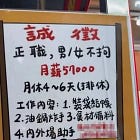 誠徵
正職,男/女不拘
月薪57000
月休4~6天(非休)
工作內容:1.裝袋結帳
2.油鍋炸物 3.食材備料
4.內外場助手